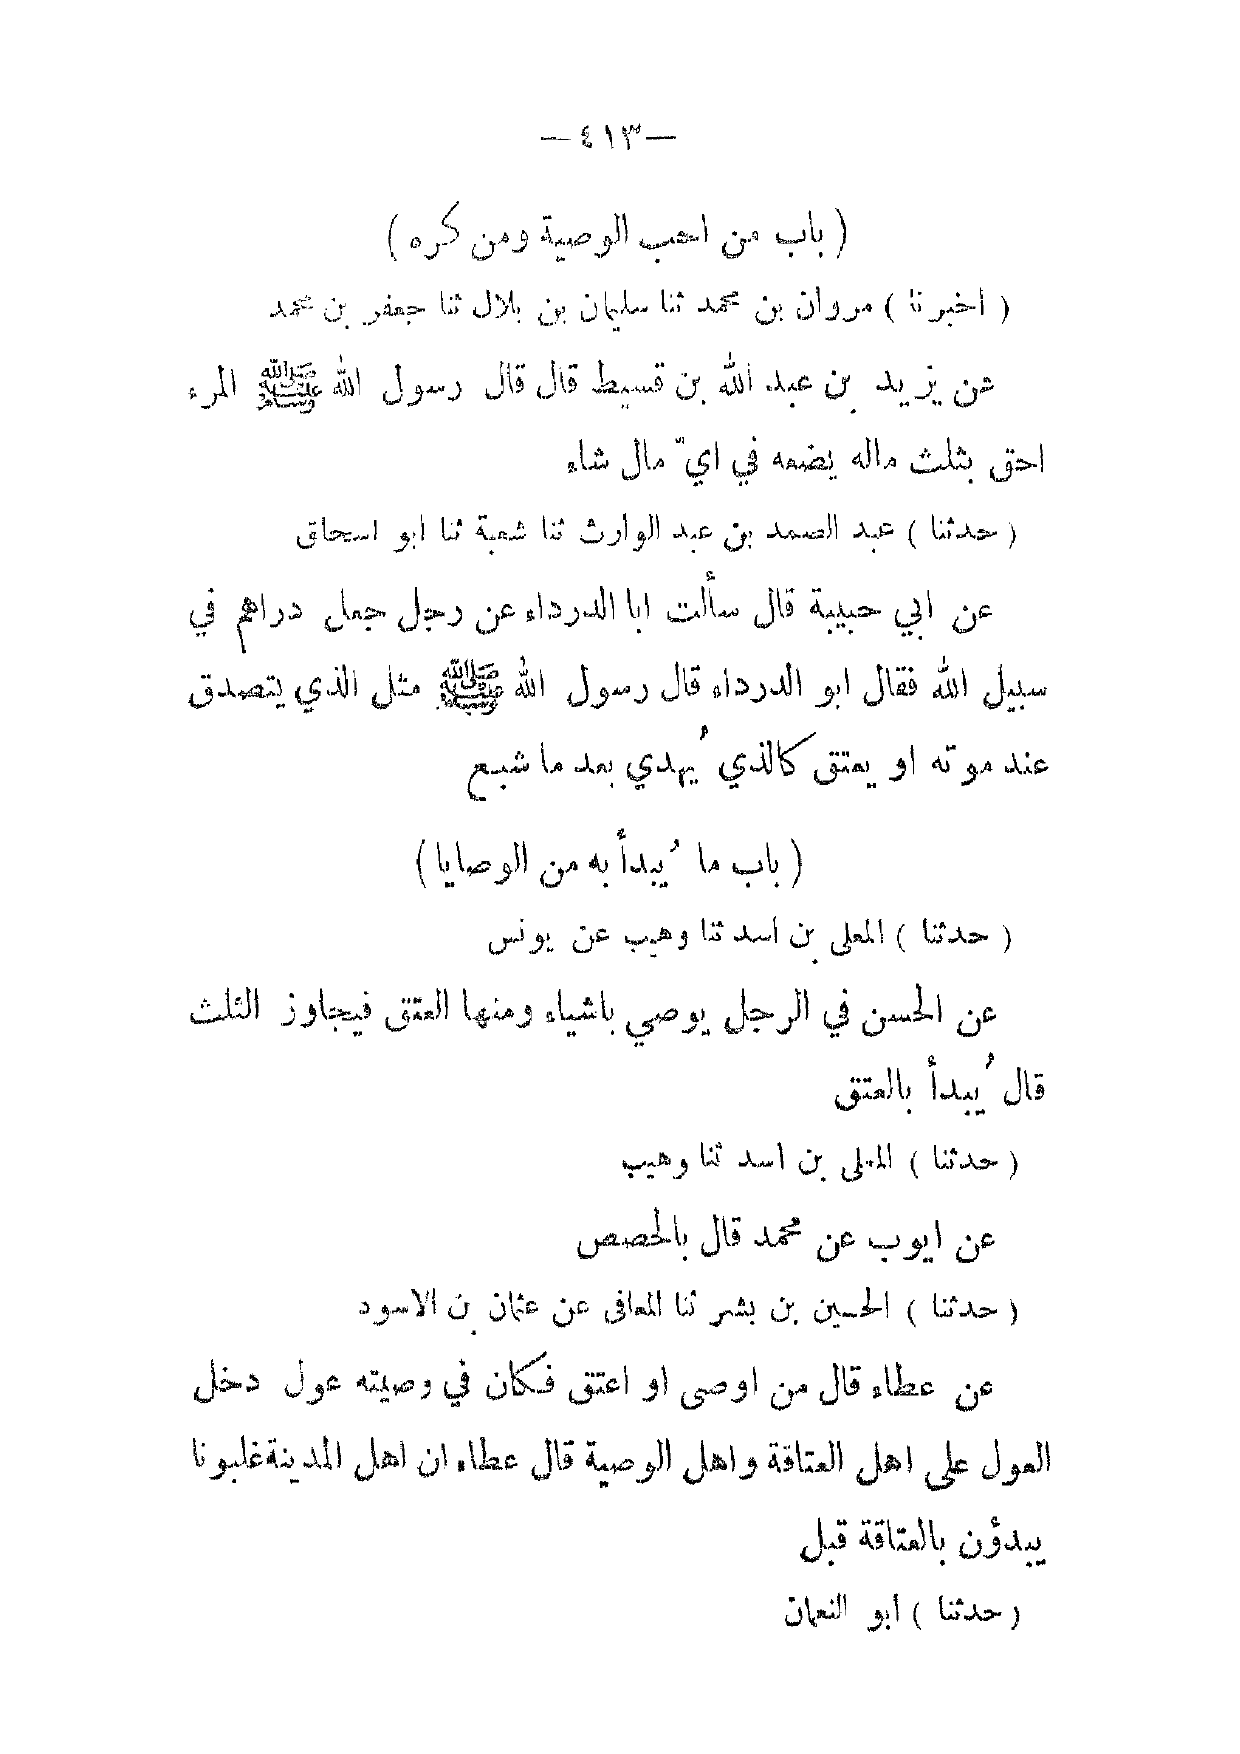 —٤١٣—
( باب من احب الوصية ومن كره )
( اخبرنا ) مروان بن محمد ثنا سليمان بن بلال ثنا جعفر بن محمد
عن يزيد بن عبد الله بن قسيط قال قال رسول الله ﷺ المرء
احق بثلث ماله يضعه في ايّ مال شاء
( حدثنا ) عبد الصمد بن عبد الوارث ثنا شعبة ثنا ابو اسحاق
عن ابي حبيبة قال سألت ابا الدرداء عن رجل جعل دراهم في
سبيل الله فقال ابو الدرداء قال رسول الله ﷺ مثل الذي يتصدق
عند موته او يعتق كالذي يُهدي بعد ما شبع
( باب ما يُبدأ به من الوصايا )
( حدثنا ) المعلى بن اسد ثنا وهيب عن يونس
عن الحسن في الرجل يوصي باشياء ومنها العتق فيجاوز الثلث
قال يُبدأ بالعتق
( حدثنا ) المعلى بن اسد ثنا وهيب
عن ايوب عن محمد قال بالحصص
( حدثنا ) الحسين بن بشر ثنا المعافى عن عثمان بن الاسود
عن عطاء قال من اوصى او اعتق فكان في وصيته عول دخل
العول على اهل العتاقة واهل الوصية قال عطاء ان اهل المدينة غلبونا
يبدؤن بالعتاقة قبل
( حدثنا ) ابو النعمان